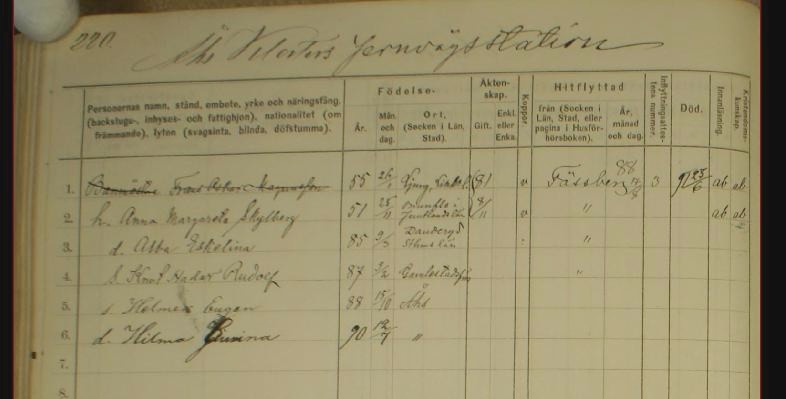 220.
Åhs Klosters Jernvägsstation
Personernas namn, stånd, embete, yrke och näringsfång, (backstugu-, inhyses- och fattighjon), nationalitet (om främmande), lyten (svagsinta, blinda, döfstumma).
Födelse-
År.
Mån. och dag.
Ort, (Socken i Län, Stad).
Äkten-skap.
Gift.
Enkl. eller Enka.
Koppor.
Hitflyttad
från (Socken i Län, Stad, eller pagina i Husför-hörsboken).
År, månad och dag.
Inflyttningsattes-tens nummer.
Död.
Innanläsning.
Kristendoms-kunskap.
1. Banmästare Frans Oskar Magnusson 55 26/1 81 v Fässberg 88 3 91 23/6 ab ab
2. h. Anna Margareta Skylberg 51 25/11 v " ab ab
3. d. Alba Eskelina 85 9/3 Danderyd Sthms län "
4. s. Knut Hadar Rudolf 87 3/2 "
5. s. Helmer Eugen 88 15/10 Åhs
6. d. Hilma 90 12/7 "
7.
8.